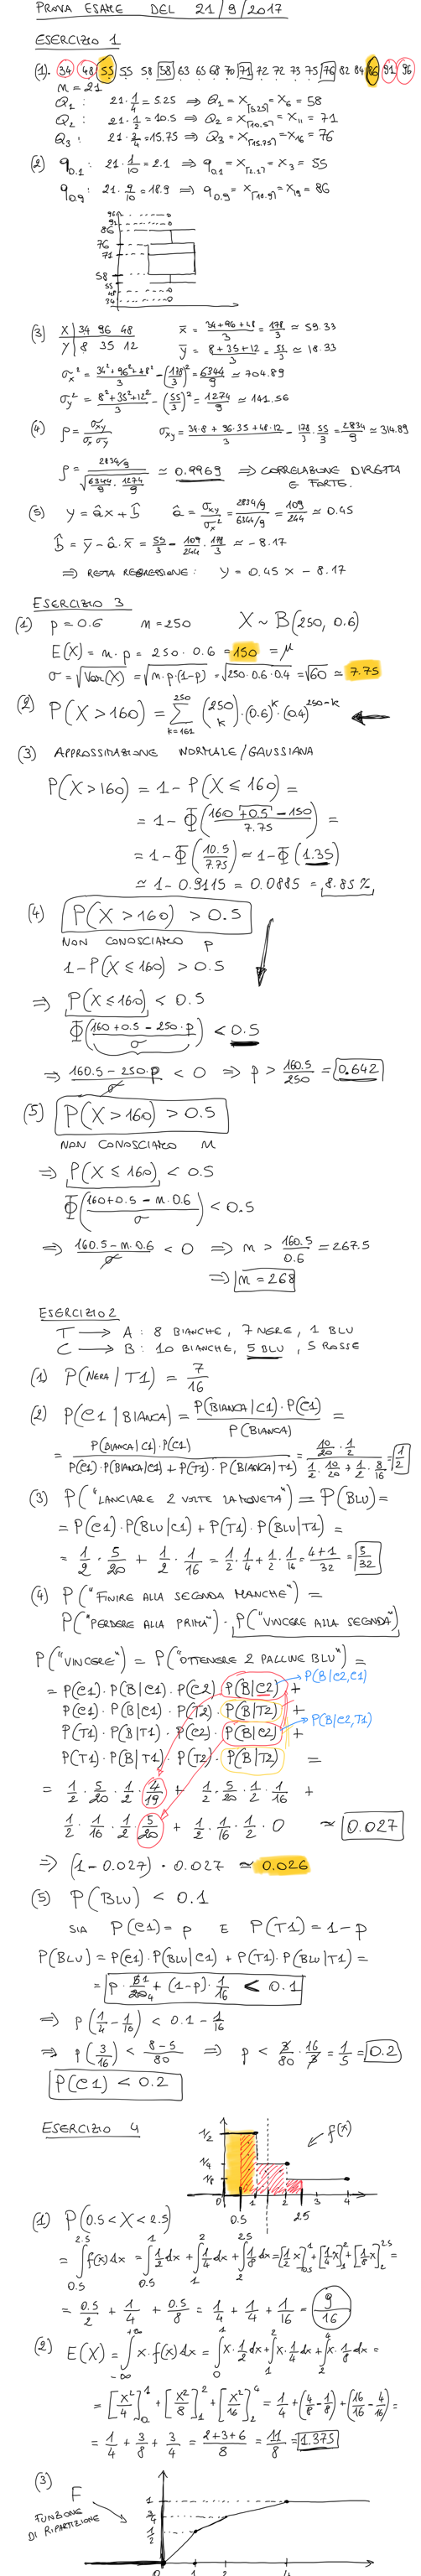 PROVA ESAME DEL 21/9/2017
ESERCIZIO 1
(1). 34 48 55 55 58 58 63 65 68 70 71 72 72 73 75 76 82 84 86 91 96
m = 21
Q1 : 21·1/4 = 5.25 ⇒ Q1 = X⌈5.25⌉ = X6 = 58
Q2 : 21·1/2 = 10.5 ⇒ Q2 = X⌈10.5⌉ = X11 = 71
Q3 : 21·3/4 = 15.75 ⇒ Q3 = X⌈15.75⌉ = X16 = 76
(2) q0.1 : 21·1/10 = 2.1 ⇒ q0.1 = X⌈2.1⌉ = X3 = 55
q0.9 : 21·9/10 = 18.9 ⇒ q0.9 = X⌈18.9⌉ = X19 = 86
96
91
86
76
71
58
55
48
34
(3) X | 34 96 48 x̄ = (34+96+48)/3 = 178/3 ≃ 59.33
Y | 8 35 12 ȳ = (8+35+12)/3 = 55/3 ≃ 18.33
σx² = (34²+96²+48²)/3 − (178/3)² = 6344/9 ≃ 704.89
σy² = (8²+35²+12²)/3 − (55/3)² = 1274/9 ≃ 141.56
(4) ρ = σxy/(σx σy) σxy = (34·8 + 96·35 + 48·12)/3 − 178/3 · 55/3 = 2834/9 ≃ 314.89
ρ = (2834/9)/√(6344/9 · 1274/9) ≃ 0.9969 ⇒ CORRELAZIONE DIRETTA
E FORTE.
(5) y = âx + b̂ â = σxy/σx² = (2834/9)/(6344/9) = 109/244 ≃ 0.45
b̂ = ȳ − â·x̄ = 55/3 − 109/244 · 178/3 ≃ −8.17
⇒ RETTA REGRESSIONE: y = 0.45 x − 8.17
ESERCIZIO 3
(1) p = 0.6 m = 250 X ~ B(250, 0.6)
E(X) = m·p = 250·0.6 = 150 = μ
σ = √Var(X) = √m·p·(1-p) = √250·0.6·0.4 = √60 ≃ 7.75
(2) P(X > 160) = Σ k=161 250 (250 k)·(0.6)^k·(0.4)^250-k
(3) APPROSSIMAZIONE NORMALE/GAUSSIANA
P(X > 160) = 1 − P(X ≤ 160) =
= 1 − Φ((160 + 0.5 − 150)/7.75) =
= 1 − Φ(10.5/7.75) ≃ 1 − Φ(1.35)
≃ 1 − 0.9115 = 0.0885 = 8.85 %
(4) P(X > 160) > 0.5
NON CONOSCIAMO p
1 − P(X ≤ 160) > 0.5
⇒ P(X ≤ 160) < 0.5
Φ((160 + 0.5 − 250·p)/σ) < 0.5
⇒ (160.5 − 250·p)/σ < 0 ⇒ p > 160.5/250 = 0.642
(5) P(X > 160) > 0.5
NON CONOSCIAMO m
⇒ P(X ≤ 160) < 0.5
Φ((160 + 0.5 − m·0.6)/σ) < 0.5
⇒ (160.5 − m·0.6)/σ < 0 ⇒ m > 160.5/0.6 = 267.5
⇒ m = 268
ESERCIZIO 2
T → A : 8 BIANCHE, 7 NERE, 1 BLU
C → B : 10 BIANCHE, 5 BLU, 5 ROSSE
(1) P(NERA | T1) = 7/16
(2) P(C1 | BIANCA) = P(BIANCA | C1)·P(C1)/P(BIANCA) =
= P(BIANCA | C1)·P(C1)/(P(C1)·P(BIANCA | C1) + P(T1)·P(BIANCA | T1)) = (10/20 · 1/2)/(1/2 · 10/20 + 1/2 · 8/16) = 1/2
(3) P("LANCIARE 2 VOLTE LA MONETA") = P(BLU) =
= P(C1)·P(BLU | C1) + P(T1)·P(BLU | T1) =
= 1/2 · 5/20 + 1/2 · 1/16 = 1/2 · 1/4 + 1/2 · 1/16 = (4+1)/32 = 5/32
(4) P("FINIRE ALLA SECONDA MANCHE") =
P("PERDERE ALLA PRIMA") · P("VINCERE ALLA SECONDA")
P("VINCERE") = P("OTTENERE 2 PALLINE BLU") =
= P(C1)·P(B | C1)·P(C2)·P(B | C2) + P(B | C2, C1)
P(C1)·P(B | C1)·P(T2)·P(B | T2) +
P(T1)·P(B | T1)·P(C2)·P(B | C2) + P(B | C2, T1)
P(T1)·P(B | T1)·P(T2)·P(B | T2) =
= 1/2 · 5/20 · 1/2 · 4/19 + 1/2 · 5/20 · 1/2 · 1/16 +
1/2 · 1/16 · 1/2 · 5/20 + 1/2 · 1/16 · 1/2 · 0 ≃ 0.027
⇒ (1 − 0.027) · 0.027 ≃ 0.026
(5) P(BLU) < 0.1
SIA P(C1) = p E P(T1) = 1 − p
P(BLU) = P(C1)·P(BLU | C1) + P(T1)·P(BLU | T1) =
= p · 5 1/20 4 + (1-p) · 1/16 < 0.1
⇒ p(1/4 − 1/16) < 0.1 − 1/16
⇒ p(3/16) < (8−5)/80 ⇒ p < 3/80 · 16/3 = 1/5 = 0.2
P(C1) < 0.2
ESERCIZIO 4
f(x)
1/2
1/4
1/8
0 1 2 3 4
0.5 2.5
(1) P(0.5 < X < 2.5)
= ∫0.5 2.5 f(x) dx = ∫0.5 1 1/2 dx + ∫1 2 1/4 dx + ∫2 2.5 1/8 dx = [1/2 x]0.5 1 + [1/4 x]1 2 + [1/8 x]2 2.5 =
= 0.5/2 + 1/4 + 0.5/8 = 1/4 + 1/4 + 1/16 = 9/16
(2) E(X) = ∫−∞ +∞ x·f(x) dx = ∫0 1 x·1/2 dx + ∫1 2 x·1/4 dx + ∫2 4 x·1/8 dx =
= [x²/4]0 1 + [x²/8]1 2 + [x²/16]2 4 = 1/4 + (4/8 − 1/8) + (16/16 − 4/16) =
= 1/4 + 3/8 + 3/4 = (2+3+6)/8 = 11/8 = 1.375
(3) F
FUNZIONE
DI RIPARTIZIONE
1
3/4
1/2
0 1 2 4